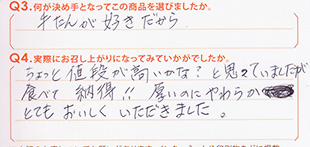 Q3.何が決め手となってこの商品を選びましたか。
牛たんが好きだから
Q4.実際にお召し上がりになってみていかがでしたか。
ちょっと値段が高いかな?と思っていましたが
食べて納得!!厚いのにやわらか
とてもおいしくいただきました。